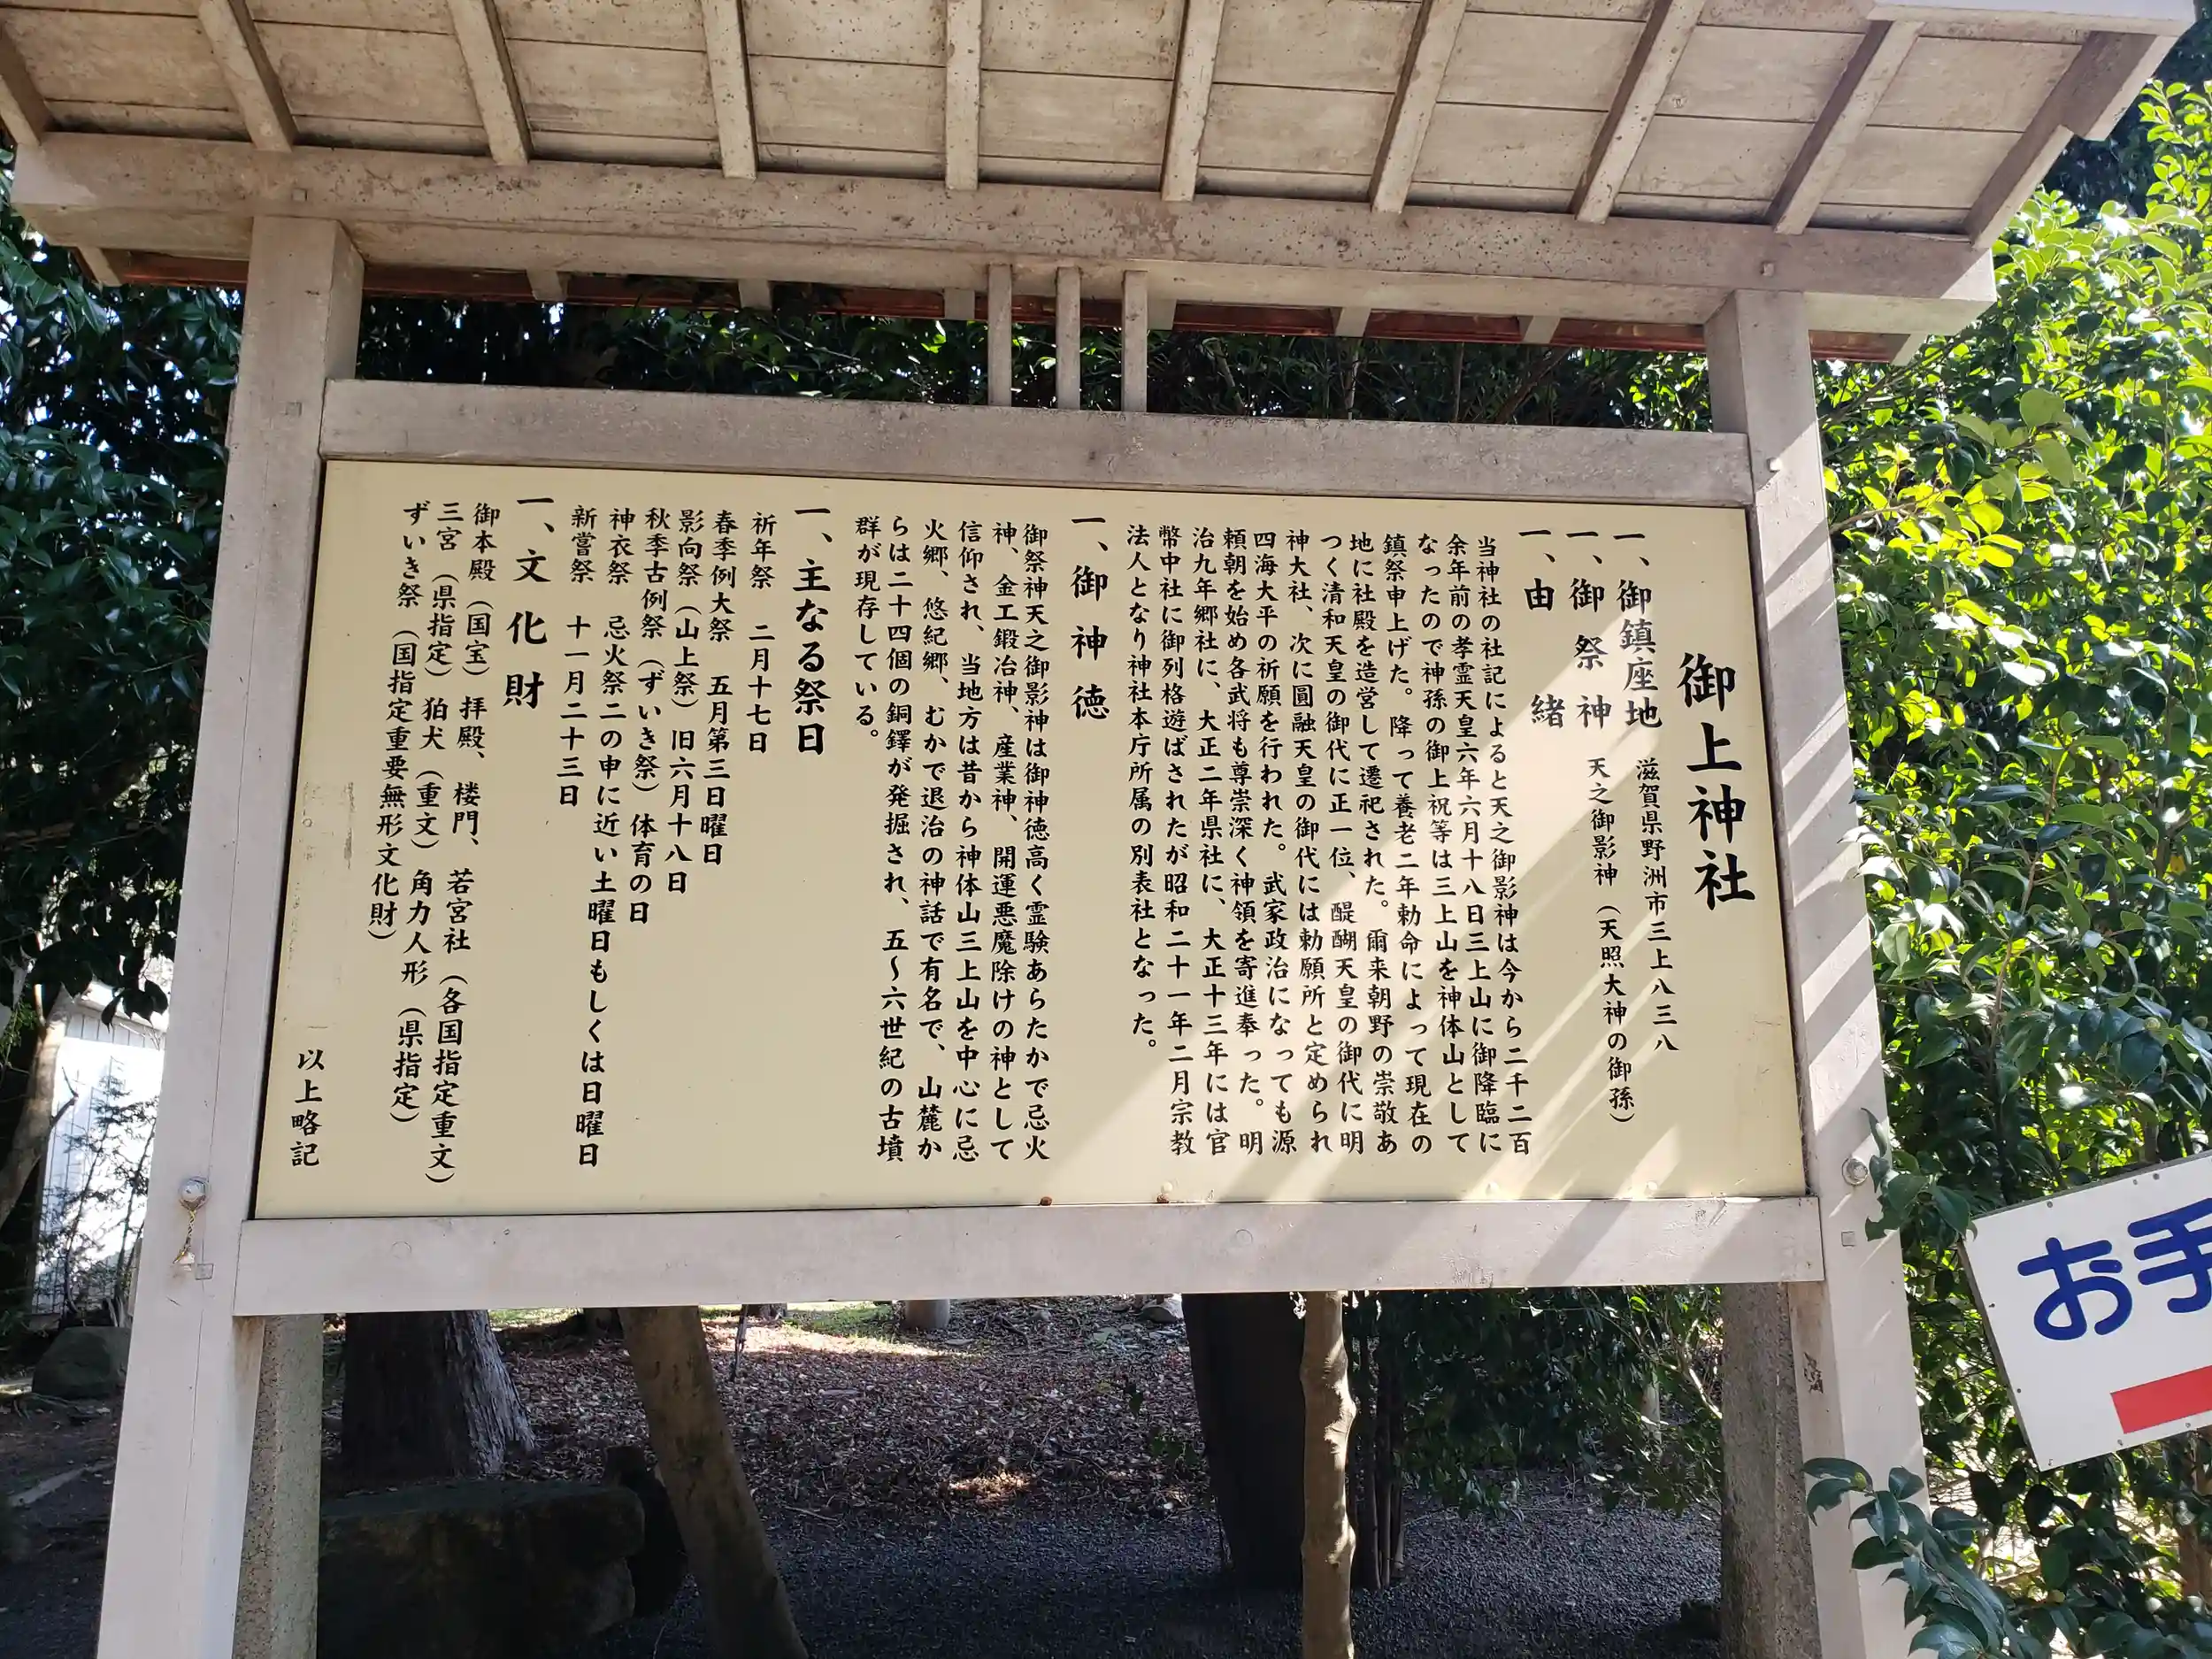 御上神社
一、御鎮座地 滋賀県野洲市三上八三八
一、御祭神 天之御影神（天照大神の御孫）
一、由緒
当神社の社記によると天之御影神は今から二千二百
余年前の孝霊天皇六年六月十八日三上山に御降臨に
なったので神孫の御上祝等は三上山を神体山として
鎮祭申上げた。降って養老二年勅命によって現在の
地に社殿を造営して遷祀された。爾来朝野の崇敬あ
つく清和天皇の御代に正一位、醍醐天皇の御代に明
神大社、次に圓融天皇の御代には勅願所と定められ
四海大平の祈願を行われた。武家政治になっても源
頼朝を始め各武将も尊崇深く神領を寄進奉った。明
治九年郷社に、大正二年県社に、大正十三年には官
幣中社に御列格遊ばされたが昭和二十一年二月宗教
法人となり神社本庁所属の別表社となった。
一、御神徳
御祭神天之御影神は御神徳高く霊験あらたかで忌火
神、金工鍛冶神、産業神、開運悪魔除けの神として
信仰され、当地方は昔から神体山三上山を中心に忌
火郷、悠紀郷、むかで退治の神話で有名で、山麓か
らは二十四個の銅鐸が発掘され、五～六世紀の古墳
群が現存している。
一、主なる祭日
祈年祭 二月十七日
春季例大祭 五月第三日曜日
影向祭（山上祭）旧六月十八日
秋季古例祭（ずいき祭）体育の日
神衣祭 忌火祭二の申に近い土曜日もしくは日曜日
新嘗祭 十一月二十三日
一、文化財
御本殿（国宝）拝殿、楼門、若宮社（各国指定重文）
三宮（県指定）狛犬（重文）角力人形（県指定）
ずいき祭（国指定重要無形文化財）
以上略記
お手